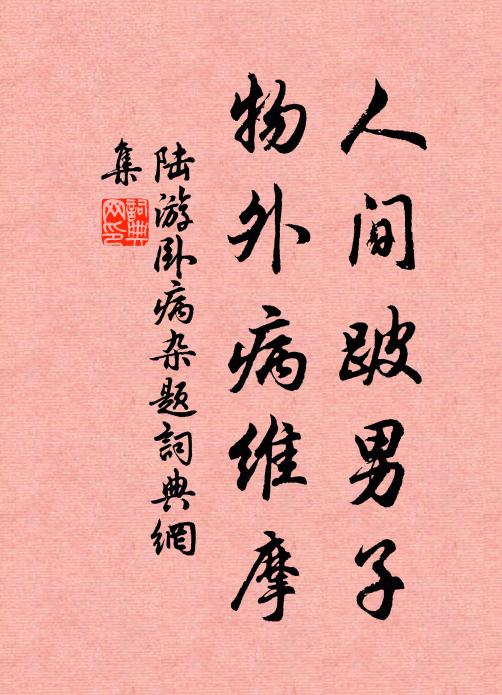 人间跛男子
物外病维摩
陆游卧病杂题詞典網
集
詞典网印